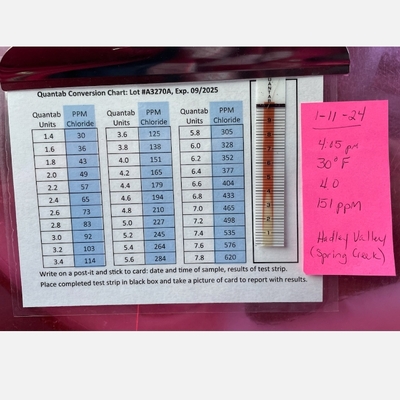 Quantab Conversion Chart: Lot #A3270A, Exp. 09/2025
Quantab Units PPM Chloride Quantab Units PPM Chloride Quantab Units PPM Chloride
1.4 30 3.6 125 5.8 305
1.6 36 3.8 138 6.0 328
1.8 43 4.0 151 6.2 352
2.0 49 4.2 165 6.4 377
2.2 57 4.4 179 6.6 404
2.4 65 4.6 194 6.8 433
2.6 73 4.8 210 7.0 465
2.8 83 5.0 227 7.2 498
3.0 92 5.2 245 7.4 535
3.2 103 5.4 264 7.6 576
3.4 114 5.6 284 7.8 620
Write on a post-it and stick to card: date and time of sample, results of test strip.
Place completed test strip in black box and take a picture of card to report with results.
QUANTAB
9
8
7
6
5
4
3
2
1
1-11-24
4:05 pm
30°F
4.0
151 ppm
Hadley Valley
(Spring Creek)